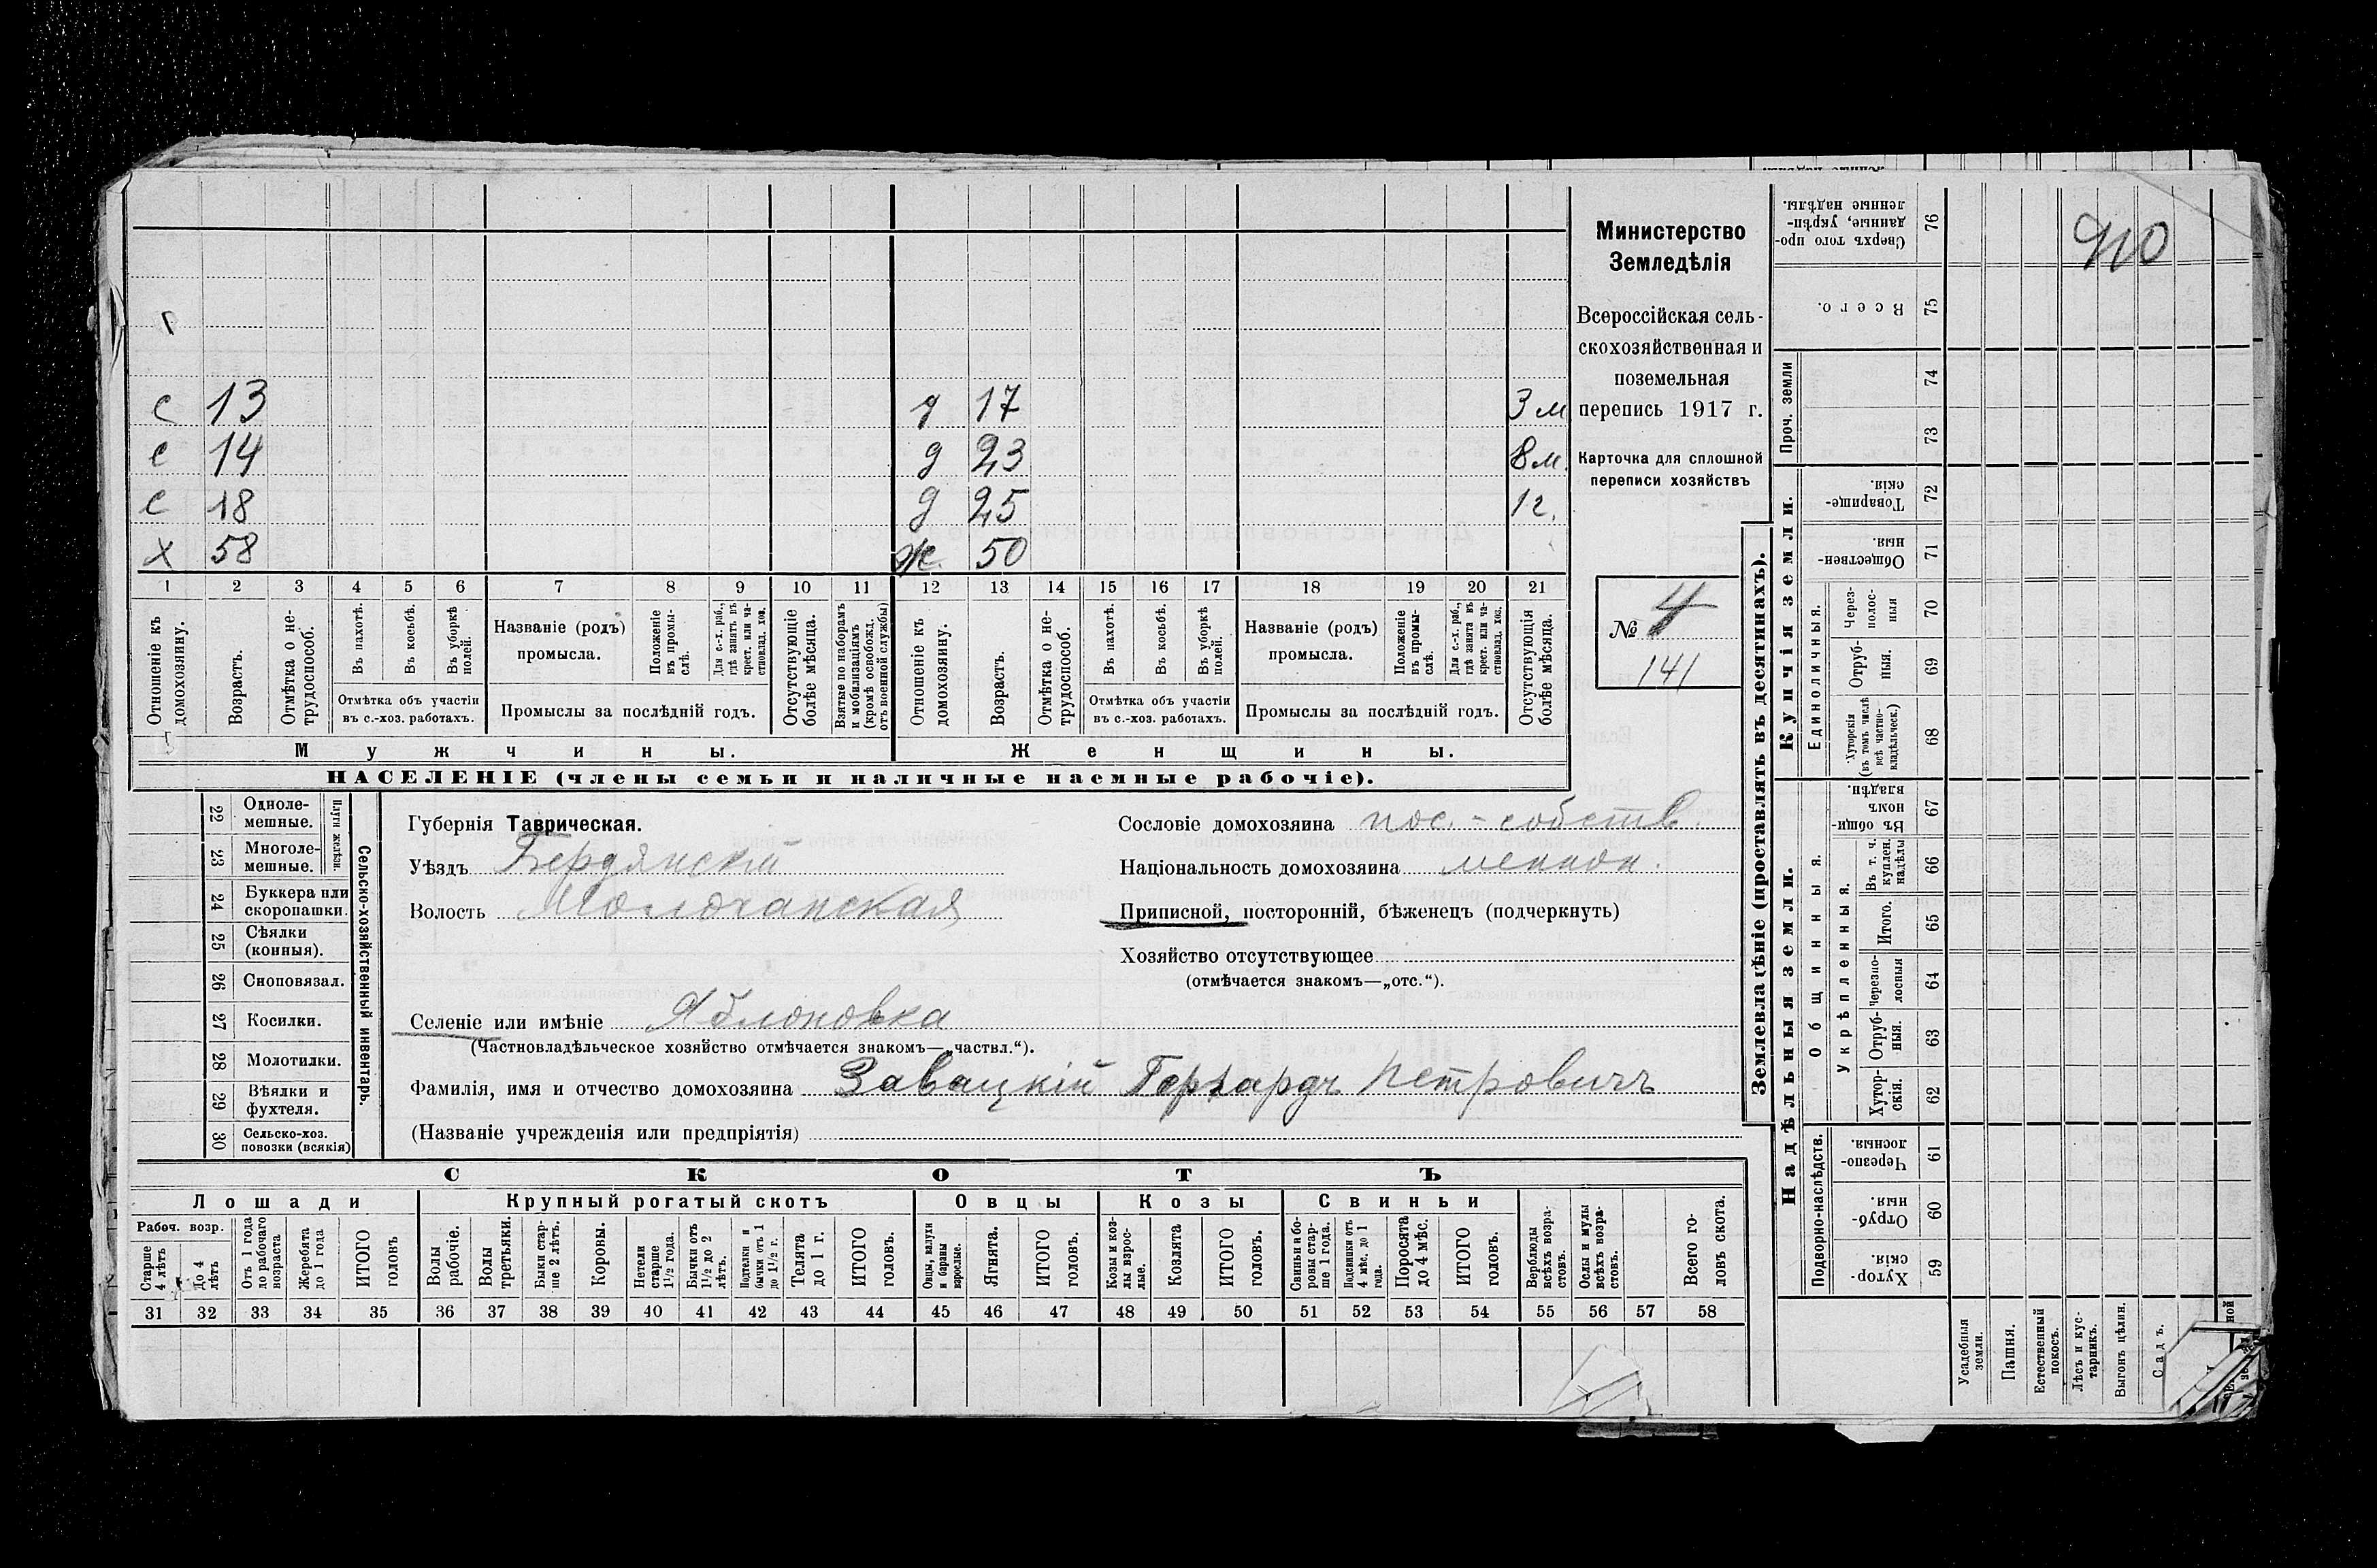 910
Министерство
Земледѣлія
Всероссійская сель-
скохозяйственная и
поземельная
перепись 1917 г.
Карточка для сплошной
переписи хозяйствъ
№ 4
141
с 13 д 17 3 м
с 14 д 23 8 м.
с 18 д 25 1 г.
х 58 ж 50
1 2 3 4 5 6 7 8 9 10 11 12 13 14 15 16 17 18 19 20 21
Отношеніе къ домохозяину.
Возрастъ.
Отмѣтка о не-трудоспособ.
Въ пахотѣ.
Въ косьбѣ.
Въ уборкѣ полей.
Отмѣтка объ участіи
въ с.-хоз. работахъ.
Названіе (родъ)
промысла.
Положеніе въ промы-слѣ.
Для с.-х. раб., гдѣ занятъ въ крест. или ча-стновлад. хоз.
Промыслы за послѣдній годъ.
Отсутствующіе болѣе мѣсяца.
Взятые по наборамъ и мобилизаціямъ (кромѣ освобожд. отъ военной службы)
Отношеніе къ домохозяину.
Возрастъ.
Отмѣтка о не-трудоспособ.
Въ пахотѣ.
Въ косьбѣ.
Въ уборкѣ полей.
Отмѣтка объ участіи
въ с.-хоз. работахъ.
Названіе (родъ)
промысла.
Положеніе въ промы-слѣ.
Для с.-х. раб., гдѣ занята въ крест. или ча-стновлад. хоз.
Промыслы за послѣдній годъ.
Отсутствующія болѣе мѣсяца.
Мужчины. Женщины.
НАСЕЛЕНІЕ (члены семьи и наличные наемные рабочіе).
22 Одноле-мешные.
23 Многоле-мешные.
Плуги желѣзн.
24 Буккера или скоропашки.
25 Сѣялки (конныя).
26 Сноповязал.
27 Косилки.
28 Молотилки.
29 Вѣялки и фухтеля.
30 Сельско-хоз. повозки (всякія)
Сельско-хозяйственный инвентарь.
Губернія Таврическая.
Уѣздъ Бердянскій
Волость Молочанская
Сословіе домохозяина пос.-собств.
Національность домохозяина меннон.
Приписной, посторонній, бѣженецъ (подчеркнуть)
Хозяйство отсутствующее
(отмѣчается знакомъ—„отс.“).
Селеніе или имѣніе Яблоновка
(Частновладѣльческое хозяйство отмѣчается знакомъ—„частвл.“).
Фамилія, имя и отчество домохозяина Завацкій Герхардъ Петровичъ
(Названіе учрежденія или предпріятія)
СКОТЪ
Лошади Крупный рогатый скотъ Овцы Козы Свиньи
Рабоч. возр.
Старше 4 лѣтъ
До 4 лѣтъ
Отъ 1 года до рабочаго возраста
Жеребята до 1 года
ИТОГО головъ
Волы рабочіе.
Волы третьяки.
Быки стар-ше 2 лѣтъ.
Коровы.
Нетели старше 1½ года.
Бычки отъ 1½ до 2 лѣтъ.
Подтелки и бычки отъ 1 до 1½ г.
Телята до 1 г.
ИТОГО головъ.
Овцы, валухи и бараны взрослые.
Ягнята.
ИТОГО головъ.
Козы и коз-лы взрос-лые.
Козлята
ИТОГО головъ.
Свиньи и бо-ровы стар-ше 1 года.
Подсвинки отъ 4 мѣс. до 1 года.
Поросята до 4 мѣс.
ИТОГО головъ.
Верблюды всѣхъ возра-стовъ.
Ослы и мулы всѣхъ возра-стовъ.
Всего го-ловъ скота.
31 32 33 34 35 36 37 38 39 40 41 42 43 44 45 46 47 48 49 50 51 52 53 54 55 56 57 58
Землевладѣніе (проставлять въ десятинахъ).
Надѣльныя земли.
Купчія земли.
Проч. земли
Подворно-наслѣдств.
Общинныя.
Укрѣпленныя.
Единоличныя.
Хутор-скія. 59
Отруб-ныя. 60
Черезпо-лосныя 61
Хутор-скія. 62
Отруб-ныя. 63
Черезпо-лосныя 64
Итого. 65
Въ т. ч. куплен. надѣлы 66
Въ общин-номъ владѣн. 67
Хуторскія (въ томъ числѣ всѣ частно-владѣльческ.) 68
Отруб-ныя. 69
Через-полос-ныя 70
Обществен-ныя. 71
Товарище-скія. 72
73
74
Всего. 75
Сверхъ того про-данные, укрѣп-ленные надѣлы. 76
Усадебныя земли.
Пашня.
Естественный покосъ.
Лѣсъ и кус-тарникъ.
Выгонъ цѣлин.
Садъ.